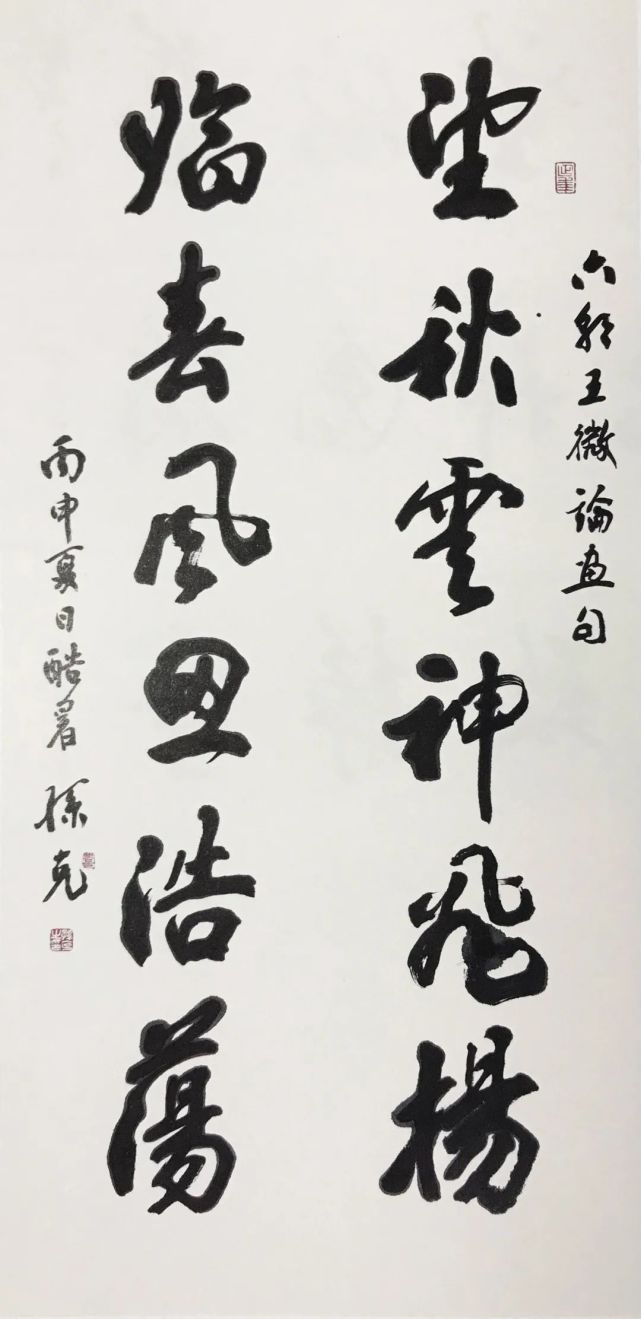 六朝王微論畫句
望秋雲神飛揚
臨春風思浩蕩
丙申夏日酷暑 孫克